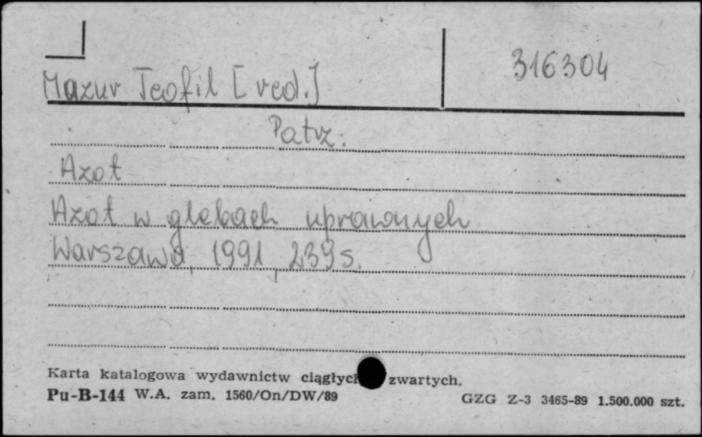 Mazur Teofil [red.] 316304
Patrz:
Azot
Azot w glebach uprawnych
Warszawa, 1991, 239 s.
Karta katalogowa wydawnictw ciągłych zwartych.
Pu-B-144 W.A. zam. 1560/On/DW/89 GZG Z-3 3465-89 1.500.000 szt.